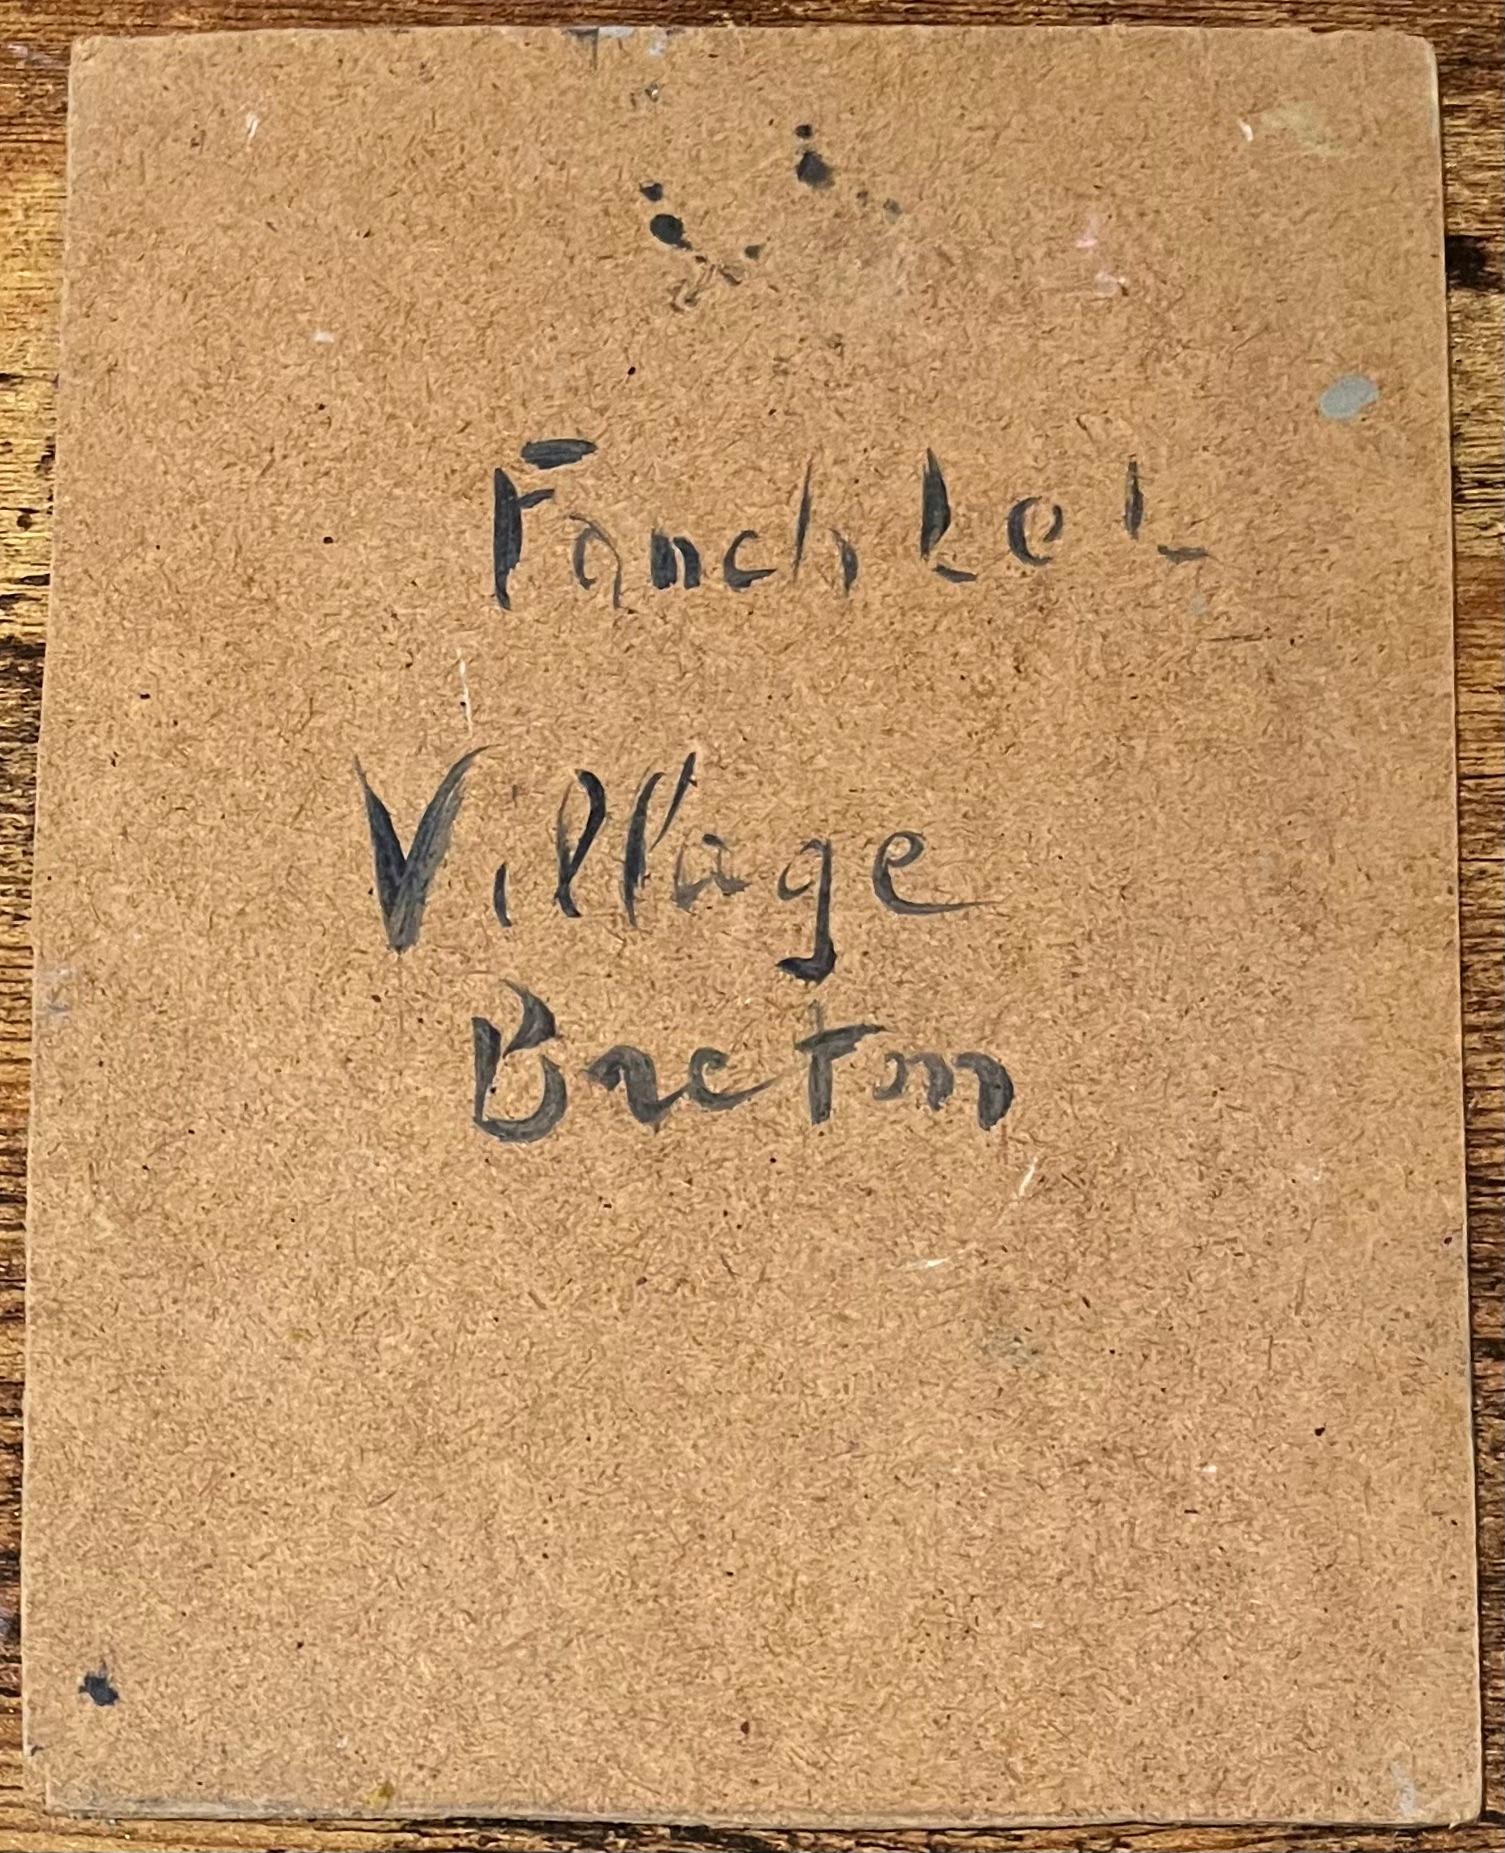 Fanch Lel
Village
Breton